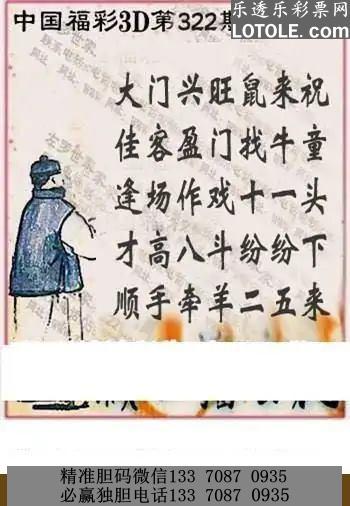 乐透乐彩票网
WWW.LOTOLE.COM
中国福彩3D第322期
大门兴旺鼠来祝
佳客盈门找牛童
逢场作戏十一头
才高八斗纷纷下
顺手牵羊二五来
精准胆码微信133 7087 0935
必赢独胆电话133 7087 0935